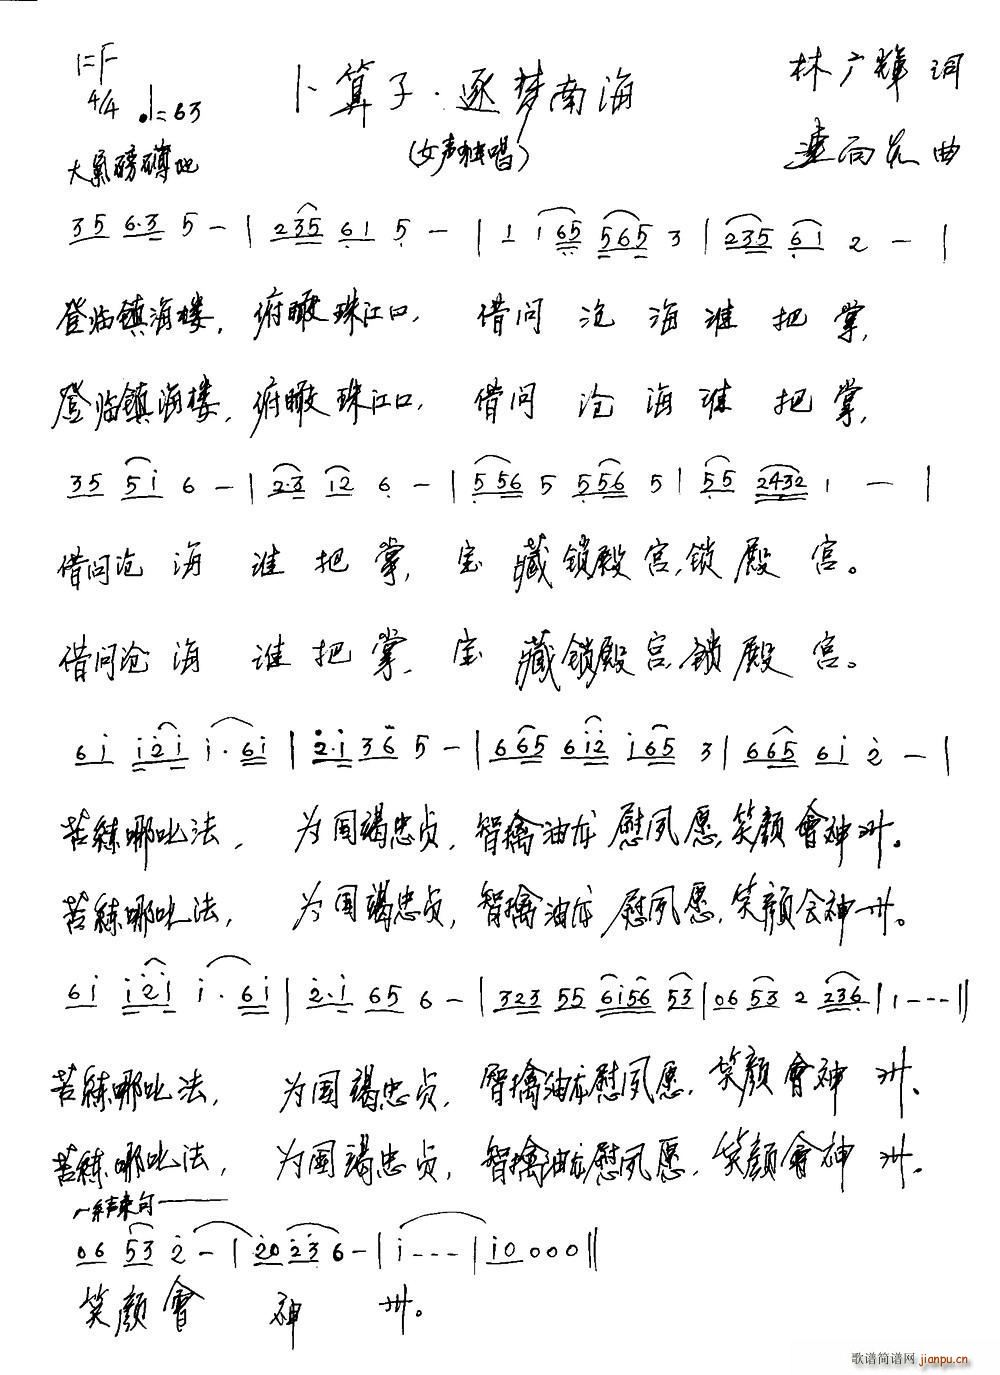 1=F
卜算子·逐梦南海
林广辉 词
4/4 ♩=63
(女声独唱)
曲
大气磅礴地
35 6·3 5 - | 235 61 5 - | 1 i65 565 3 | 235 61 2 - |
登临镇海楼, 俯瞰珠江口, 借问沧海谁把掌,
登临镇海楼, 俯瞰珠江口, 借问沧海谁把掌,
35 5i 6 - | 2·3 12 6 - | 556 5 556 5 | 55 2432 1 - |
借问沧海谁把掌, 宝藏锁殿宫,锁殿宫。
借问沧海谁把掌, 宝藏锁殿宫,锁殿宫。
6i i2i i·6i | 2·i 36 5 - | 665 6i2 i65 3 | 665 6i 2 - |
苦练哪吒法, 为国竭忠贞, 智擒油龙慰夙愿,笑颜會神州。
苦练哪吒法, 为国竭忠贞, 智擒油龙慰夙愿,笑颜会神州。
6i i2i i·6i | 2·i 65 6 - | 323 55 6i56 53 | 06 53 2 236 | 1 - - - ||
苦练哪吒法, 为国竭忠贞, 智擒油龙慰夙愿, 笑颜會神州。
苦练哪吒法, 为国竭忠贞, 智擒油龙慰夙愿, 笑颜會神州。
结束句
06 53 2 - | 20 23 6 - | i - - - | i0 0 0 0 ||
笑颜會神州。
歌谱简谱网
jianpu.cn